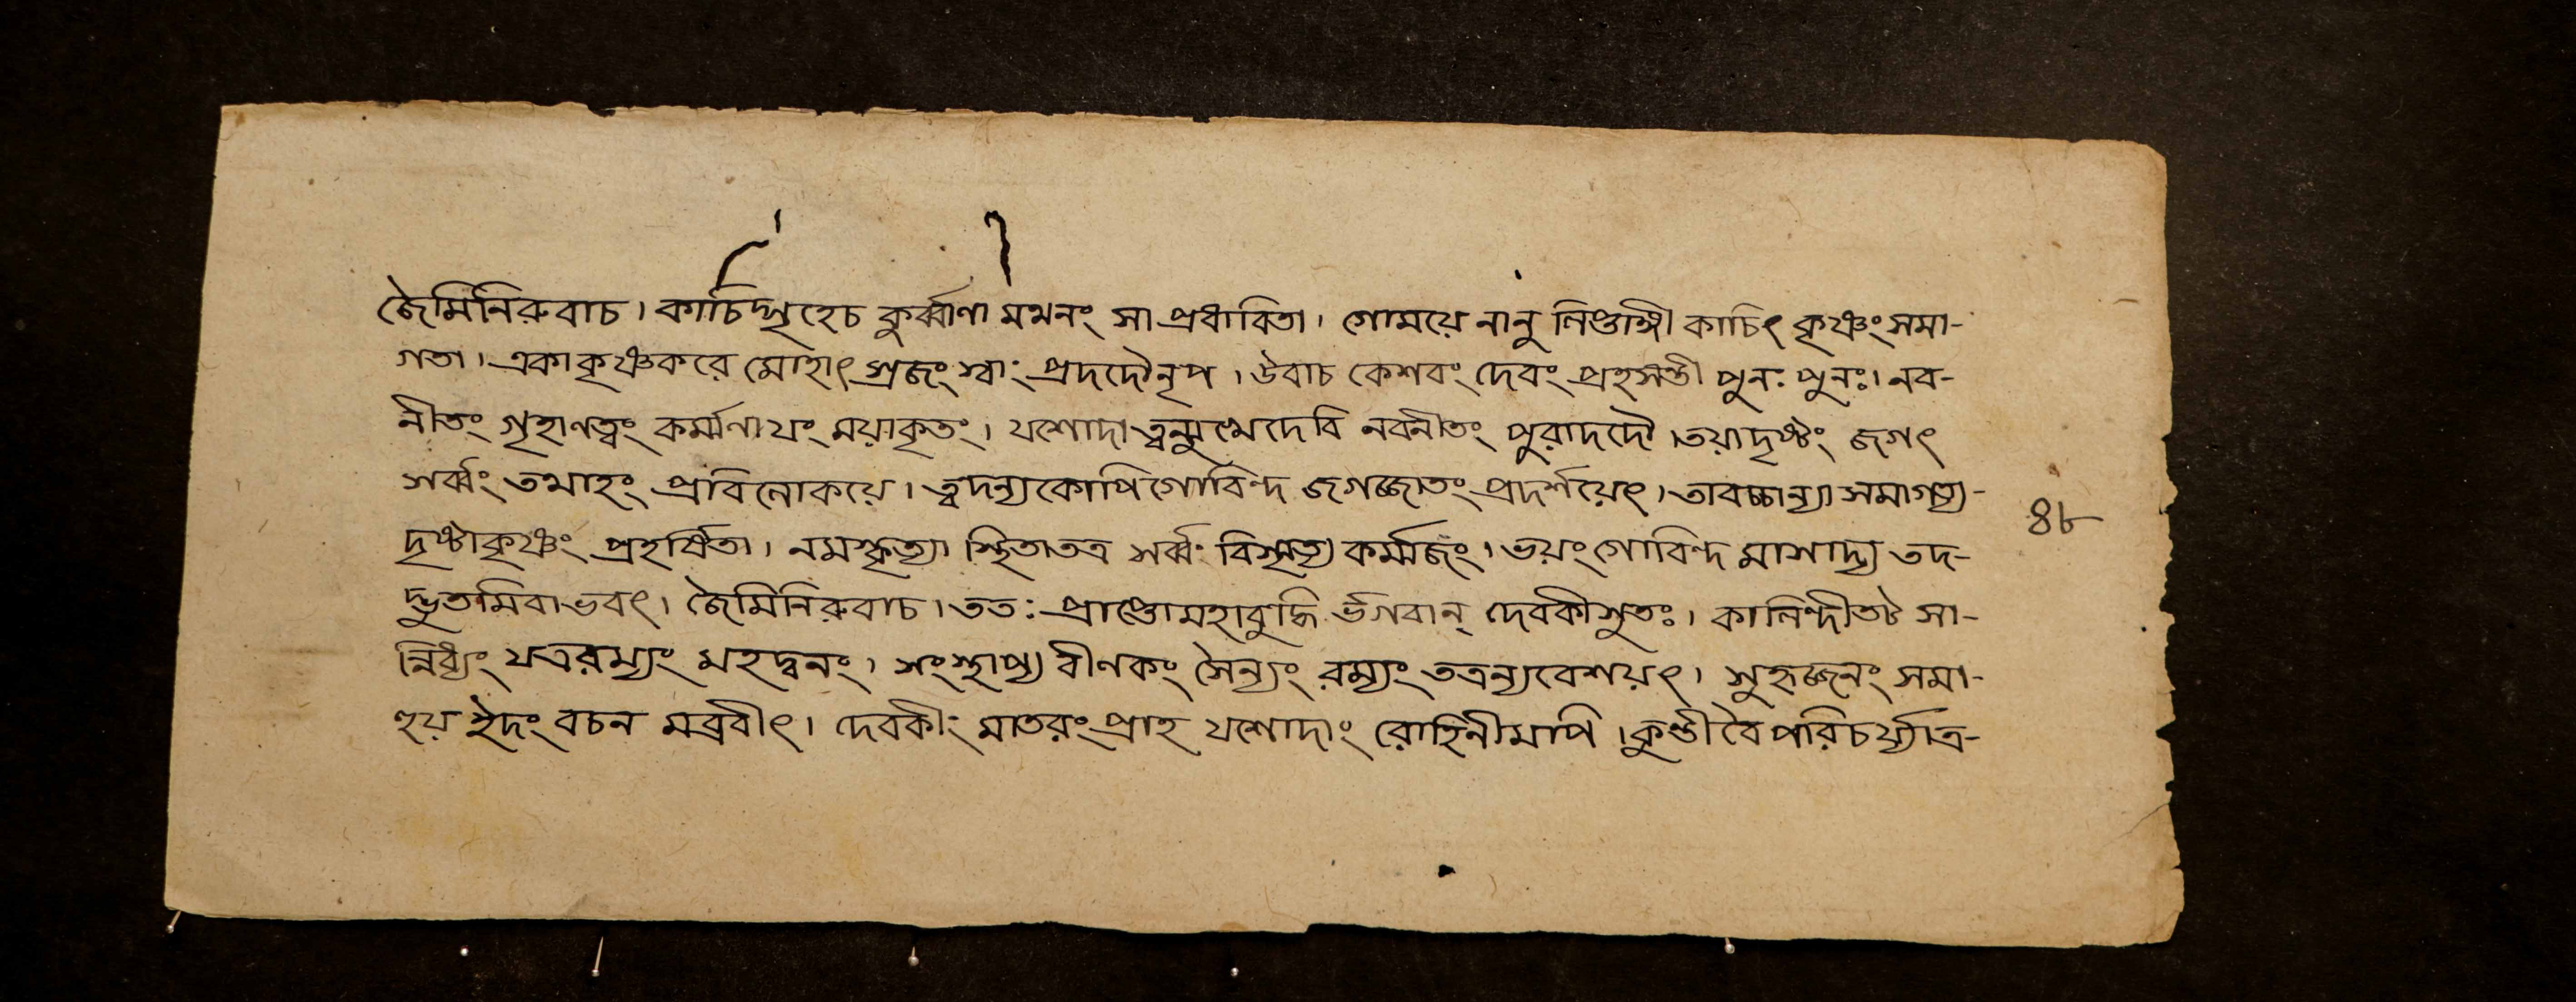 জৈমিনিরুবাচ। কাচিদ্গৃহেচ কুর্ব্বাণা মথনং সা প্রধাবিতা। গোময়ে নানু লিপ্তাঙ্গী কাচিৎ কৃষ্ণং সমা-
গতা। একা কৃষ্ণকরে মোহাৎ স্রজং স্বাং প্রদদৌ নৃপ। উবাচ কেশবং দেবং প্রহসন্তী পুনঃ পুনঃ। নব-
নীতং গৃহাণত্বং কর্ম্মণাযং ময়াকৃতং। যশোদা ত্বন্মুখেদেবি নবনীতং পুরাদদৌ। তয়াদৃষ্টং জগৎ
সর্ব্বং তথাহং প্রবিলোকয়ে। ত্বদন্যকোপিগোবিন্দ জগজ্জাতং প্রদর্শয়েৎ। তাবচ্চান্যা সমাগত্য-
দৃষ্টাকৃষ্ণং প্রহর্ষিতা। নমস্কৃত্যা স্থিতাতত্র সর্ব্বং বিস্মৃত্য কর্ম্মজং। ভয়ং গোবিন্দ মাসাদ্য তদ-
দ্ভুতমিবাভবৎ। জৈমিনিরুবাচ। ততঃ প্রাপ্তোমহাবুদ্ধি র্ভগবান্ দেবকীসুতঃ। কালিন্দীতট সা-
ন্নিধ্যং যত্ররম্যং মহদ্বনং। সংস্থাপ্য বীণকং সৈন্যং রম্যং তত্রন্যবেশয়ৎ। সুহৃজ্জনং সমা-
হূয় ইদং বচন মব্রবীৎ। দেবকীং মাতরং প্রাহ যশোদাং রোহিনীমাপি। কুন্তী বৈ পরিচর্য্যাত্র-
৪৮